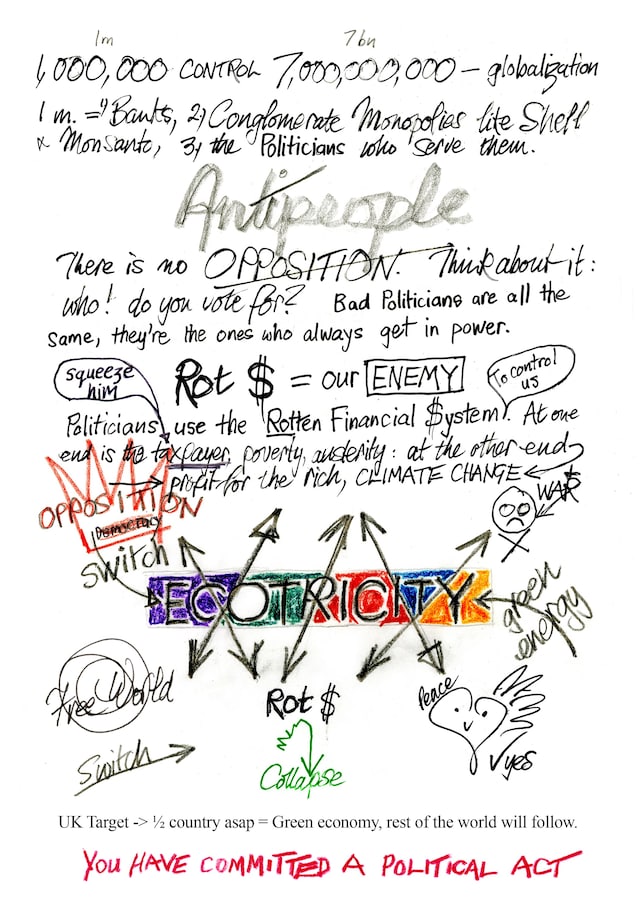 1m 7bn
1,000,000 CONTROL 7,000,000,000 – globalization
1 m. = 1) Banks, 2) Conglomerate Monopolies like Shell
& Monsanto, 3) the Politicians who serve them.
Antipeople
There is no OPPOSITION. Think about it:
who! do you vote for? Bad Politicians are all the
same, they're the ones who always get in power.
squeeze
him
Rot $ = our ENEMY
To control
us
Politicians use the Rotten Financial $ystem. At one
end is the taxpayer, poverty, austerity: at the other end
profit for the rich, CLIMATE CHANGE
WA$
OPPOSITION
Democracy
switch
ECOTRICITY
green
energy
Free World
Rot $
Peace
Switch
Collapse
yes
UK Target -> ½ country asap = Green economy, rest of the world will follow.
YOU HAVE COMMITTED A POLITICAL ACT